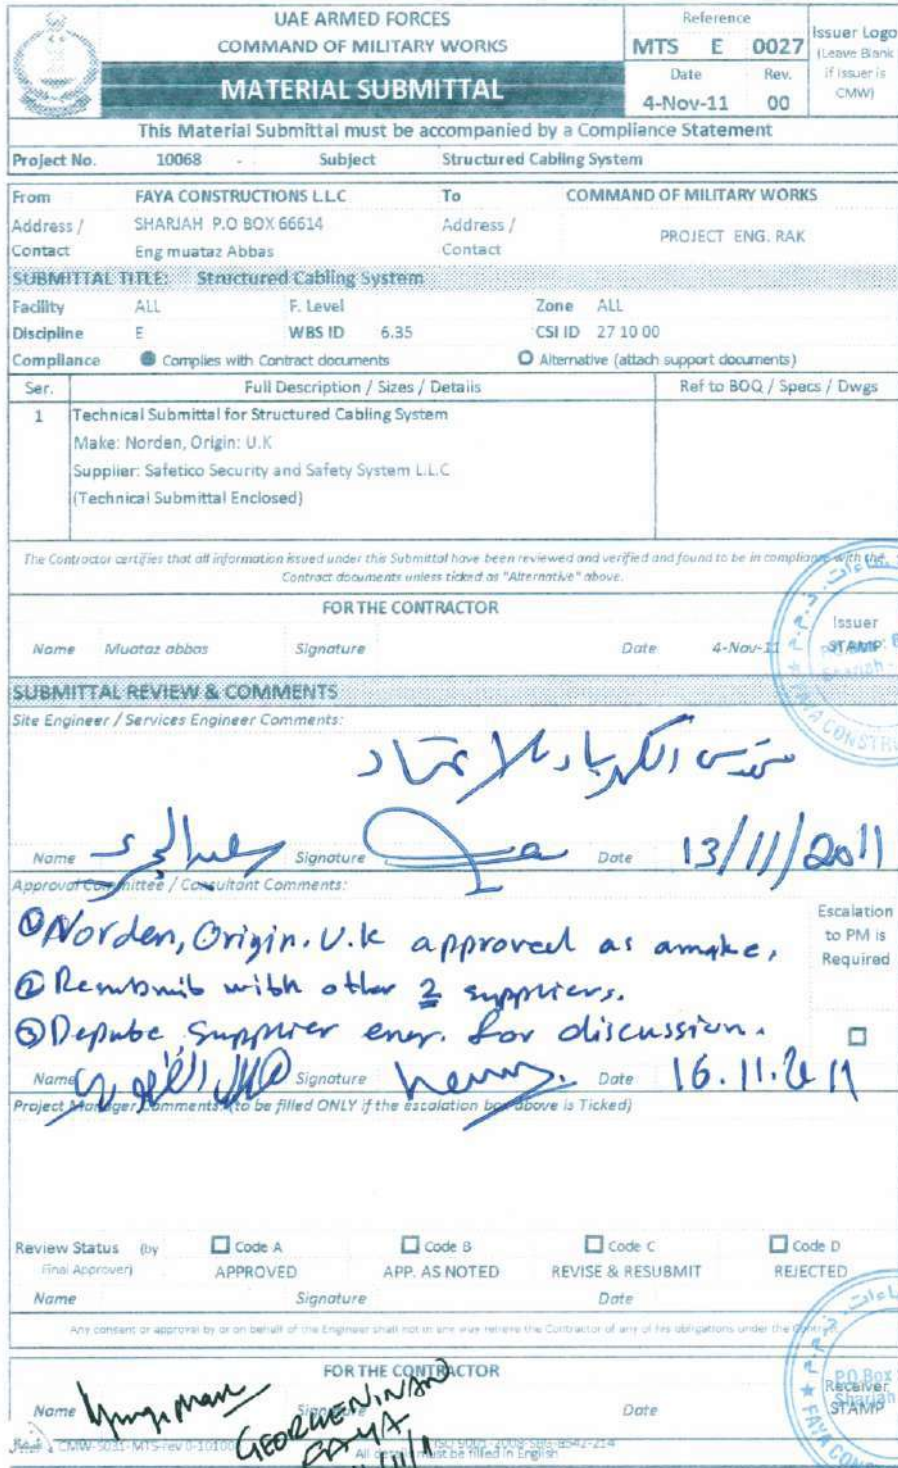 UAE ARMED FORCES
COMMAND OF MILITARY WORKS
MATERIAL SUBMITTAL
Reference
MTS E 0027
Date Rev.
4-Nov-11 00
Issuer Logo
(Leave Blank
if issuer is
CMW)
This Material Submittal must be accompanied by a Compliance Statement
Project No. 10068 - Subject Structured Cabling System
From FAYA CONSTRUCTIONS L.L.C To COMMAND OF MILITARY WORKS
Address / SHARJAH P.O BOX 66614 Address / PROJECT ENG. RAK
Contact Eng muataz Abbas Contact
SUBMITTAL TITLE: Structured Cabling System
Facility ALL F. Level Zone ALL
Discipline E WBS ID 6.35 CSI ID 27 10 00
Compliance Complies with Contract documents Alternative (attach support documents)
Ser. Full Description / Sizes / Details Ref to BOQ / Specs / Dwgs
1 Technical Submittal for Structured Cabling System
Make: Norden, Origin: U.K
Supplier: Safetico Security and Safety System L.L.C
(Technical Submittal Enclosed)
The Contractor certifies that all information issued under this Submittal have been reviewed and verified and found to be in compliance with the
Contract documents unless ticked as "Alternative" above.
FOR THE CONTRACTOR
Issuer
Name Muataz abbas Signature Date 4-Nov-11 STAMP
FAYA CONSTR
SUBMITTAL REVIEW & COMMENTS
Site Engineer / Services Engineer Comments:
الكهرباء للاعتماد
Name Signature Date 13/11/2011
Approval Committee / Consultant Comments:
① Norden, Origin. U.k approved as amake,
② Resubmit with other 2 suppliers.
③ Depute supplier engr. for discussion.
Escalation
to PM is
Required
Name Signature Date 16.11.2011
Project Manager Comments: (to be filled ONLY if the escalation box above is Ticked)
Review Status (by Code A Code B Code C Code D
Final Approver) APPROVED APP. AS NOTED REVISE & RESUBMIT REJECTED
Name Signature Date
Any consent or approval by or on behalf of the Engineer shall not in any way relieve the Contractor of any of his obligations under the Contract.
FOR THE CONTRACTOR
P.O Box
Receiver
Sharjah
Name Signature Date STAMP
GEORGE NINAN
FAYA
FAYA CON
CMW-5031-MTS-rev 0-10100
All details must be filled in English